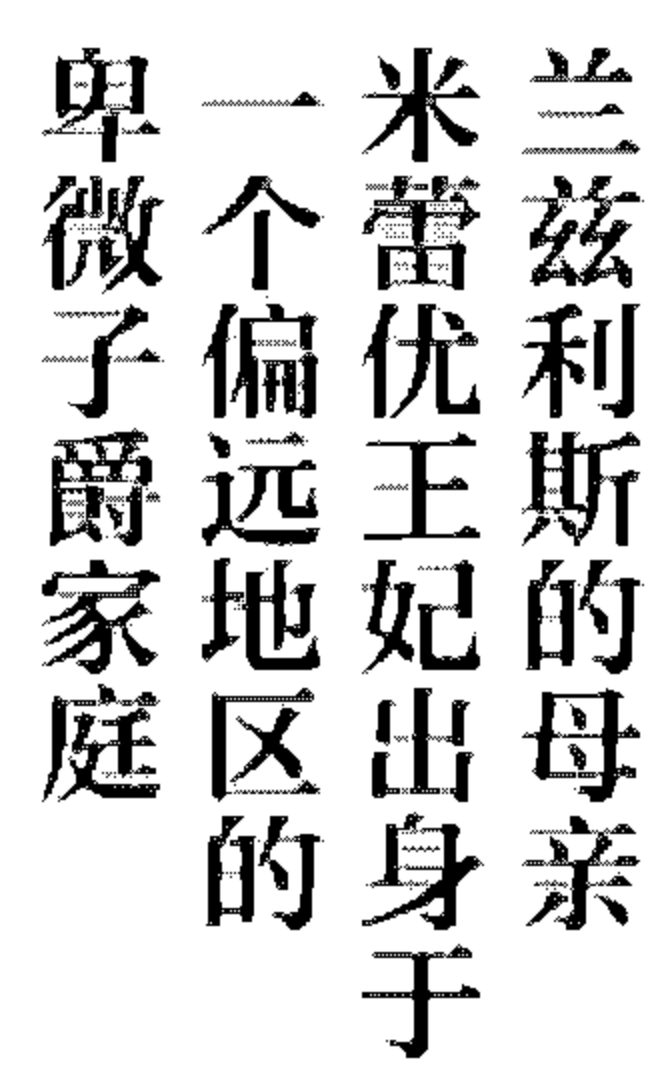 兰兹利斯的母亲
米蕾优王妃出身于
一个偏远地区的
卑微子爵家庭